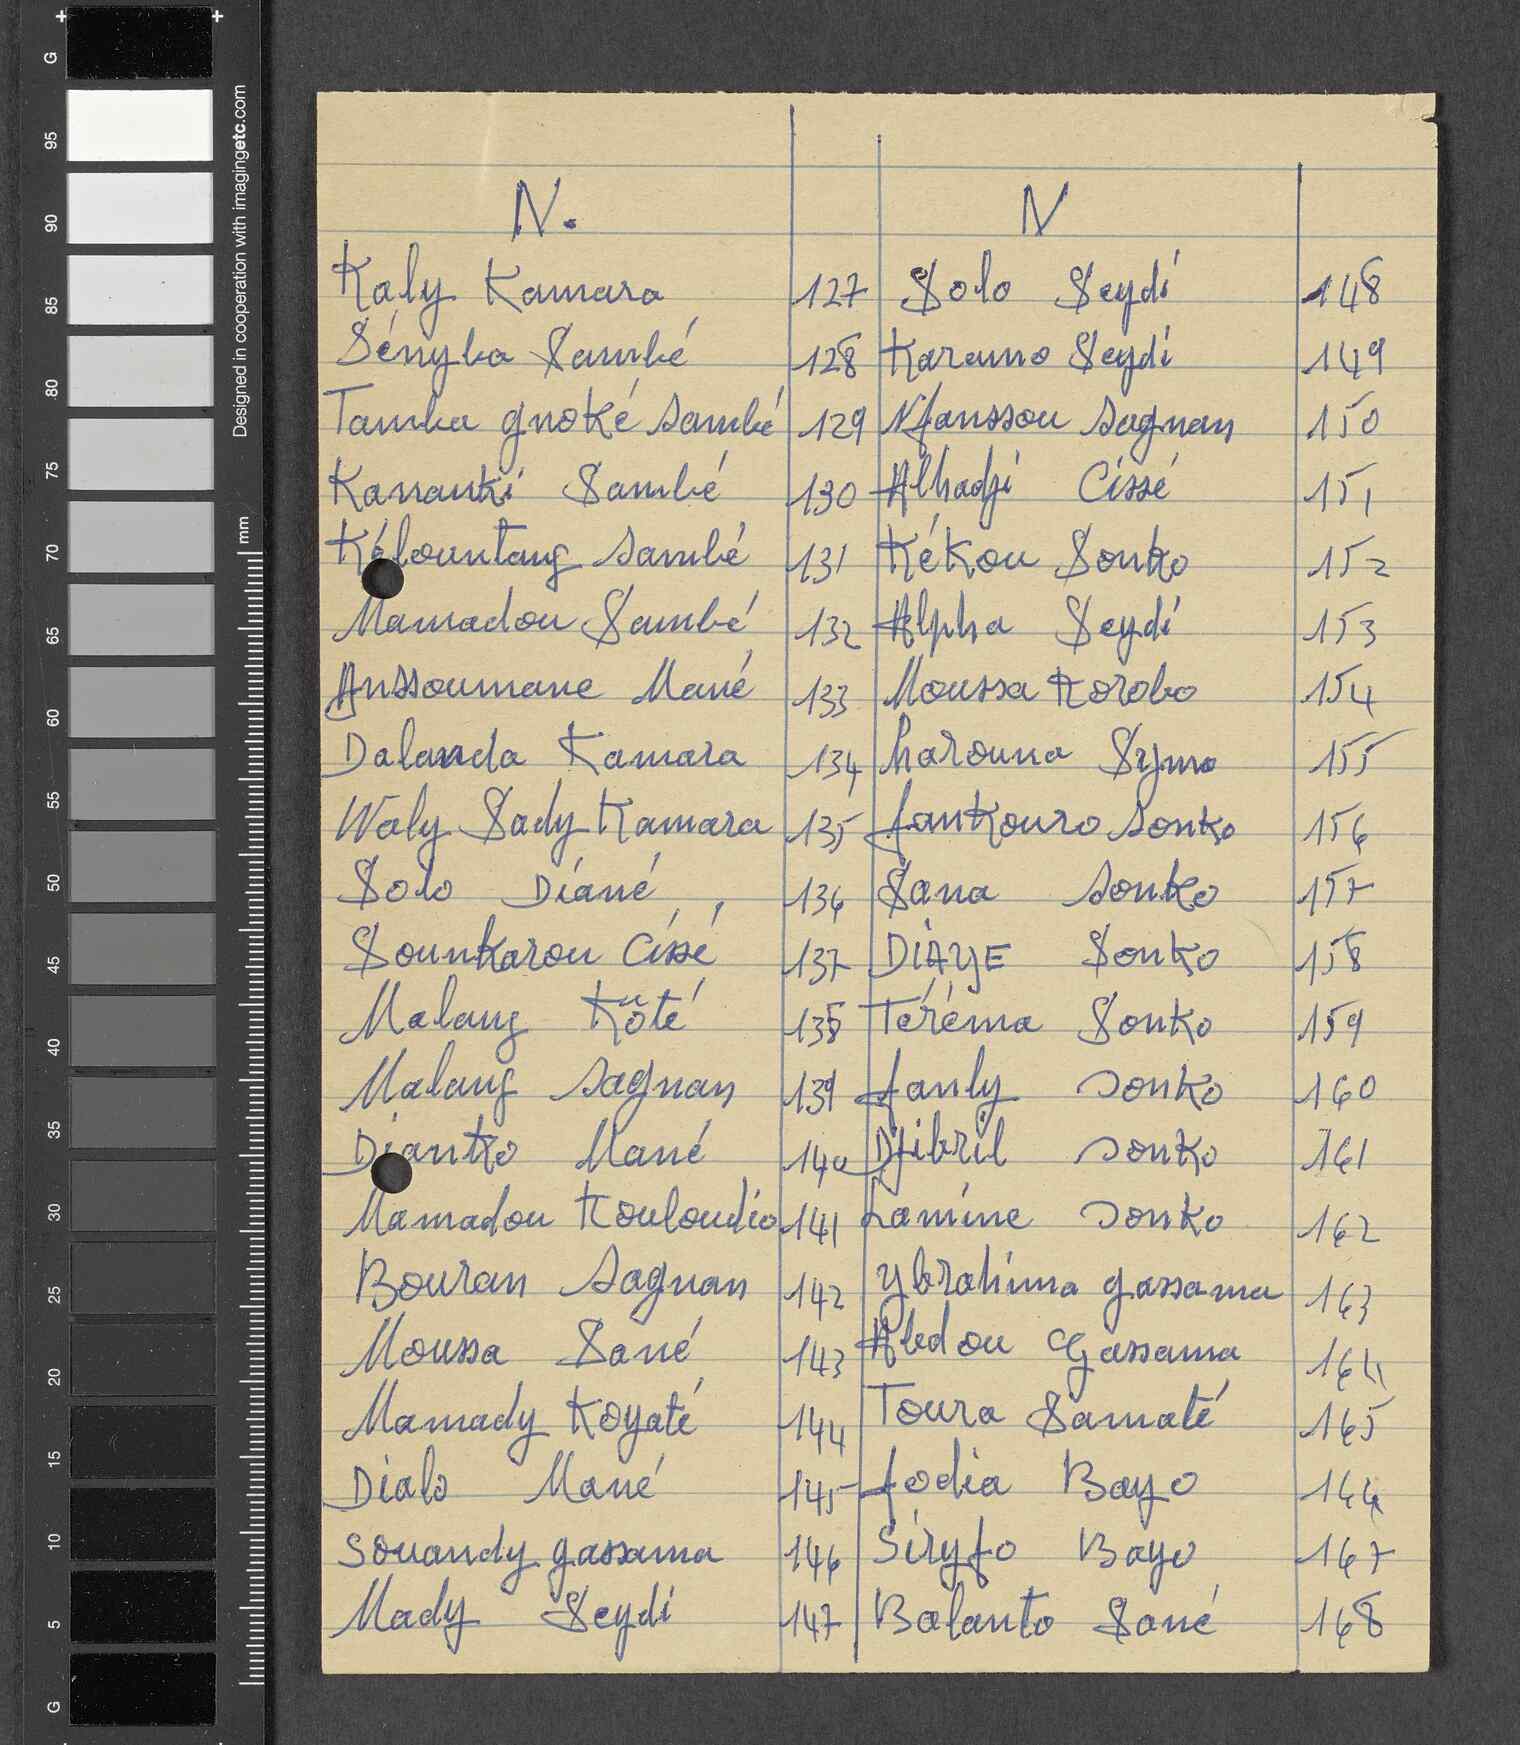 N. N
Kaly Kamara 127 Solo Seydi 148
Sényba Sambé 128 Karamo Seydi 149
Tamba gnoké Sambé 129 Nfanssou Sagnan 150
Kananki Sambé 130 Alhadji Cissé 151
Kéountang Sambé 131 Kékou Sonko 152
Mamadou Sambé 132 Alpha Seydi 153
Anssoumane Mané 133 Moussa Korobo 154
Dalanda Kamara 134 harouna Symo 155
Waly Sady Kamara 135 fankouro Sonko 156
Solo Diané 136 Sana Sonko 157
Sounkarou Cissé 137 DIAYE Sonko 158
Malang Köté 138 Téréma Sonko 159
Malang Sagnan 139 fanly Sonko 160
Dianko Mané 140 Djibril Sonko 161
Mamadou Kouloudio 141 Lamine Sonko 162
Bouran Sagnan 142 Ybrahima gassama 163
Moussa Sané 143 Abdou Gassama 164
Mamady Koyaté 144 Toura Samaté 165
Dialo Mané 145 fodia Bayo 166
Souandy gassama 146 Siryfo Bayo 167
Mady Seydi 147 Balanto Sané 168
G 95 90 85 80 75 70 65 60 55 50 45 40 35 30 25 20 15 10 5 G
Designed in cooperation with imagingetc.com
mm